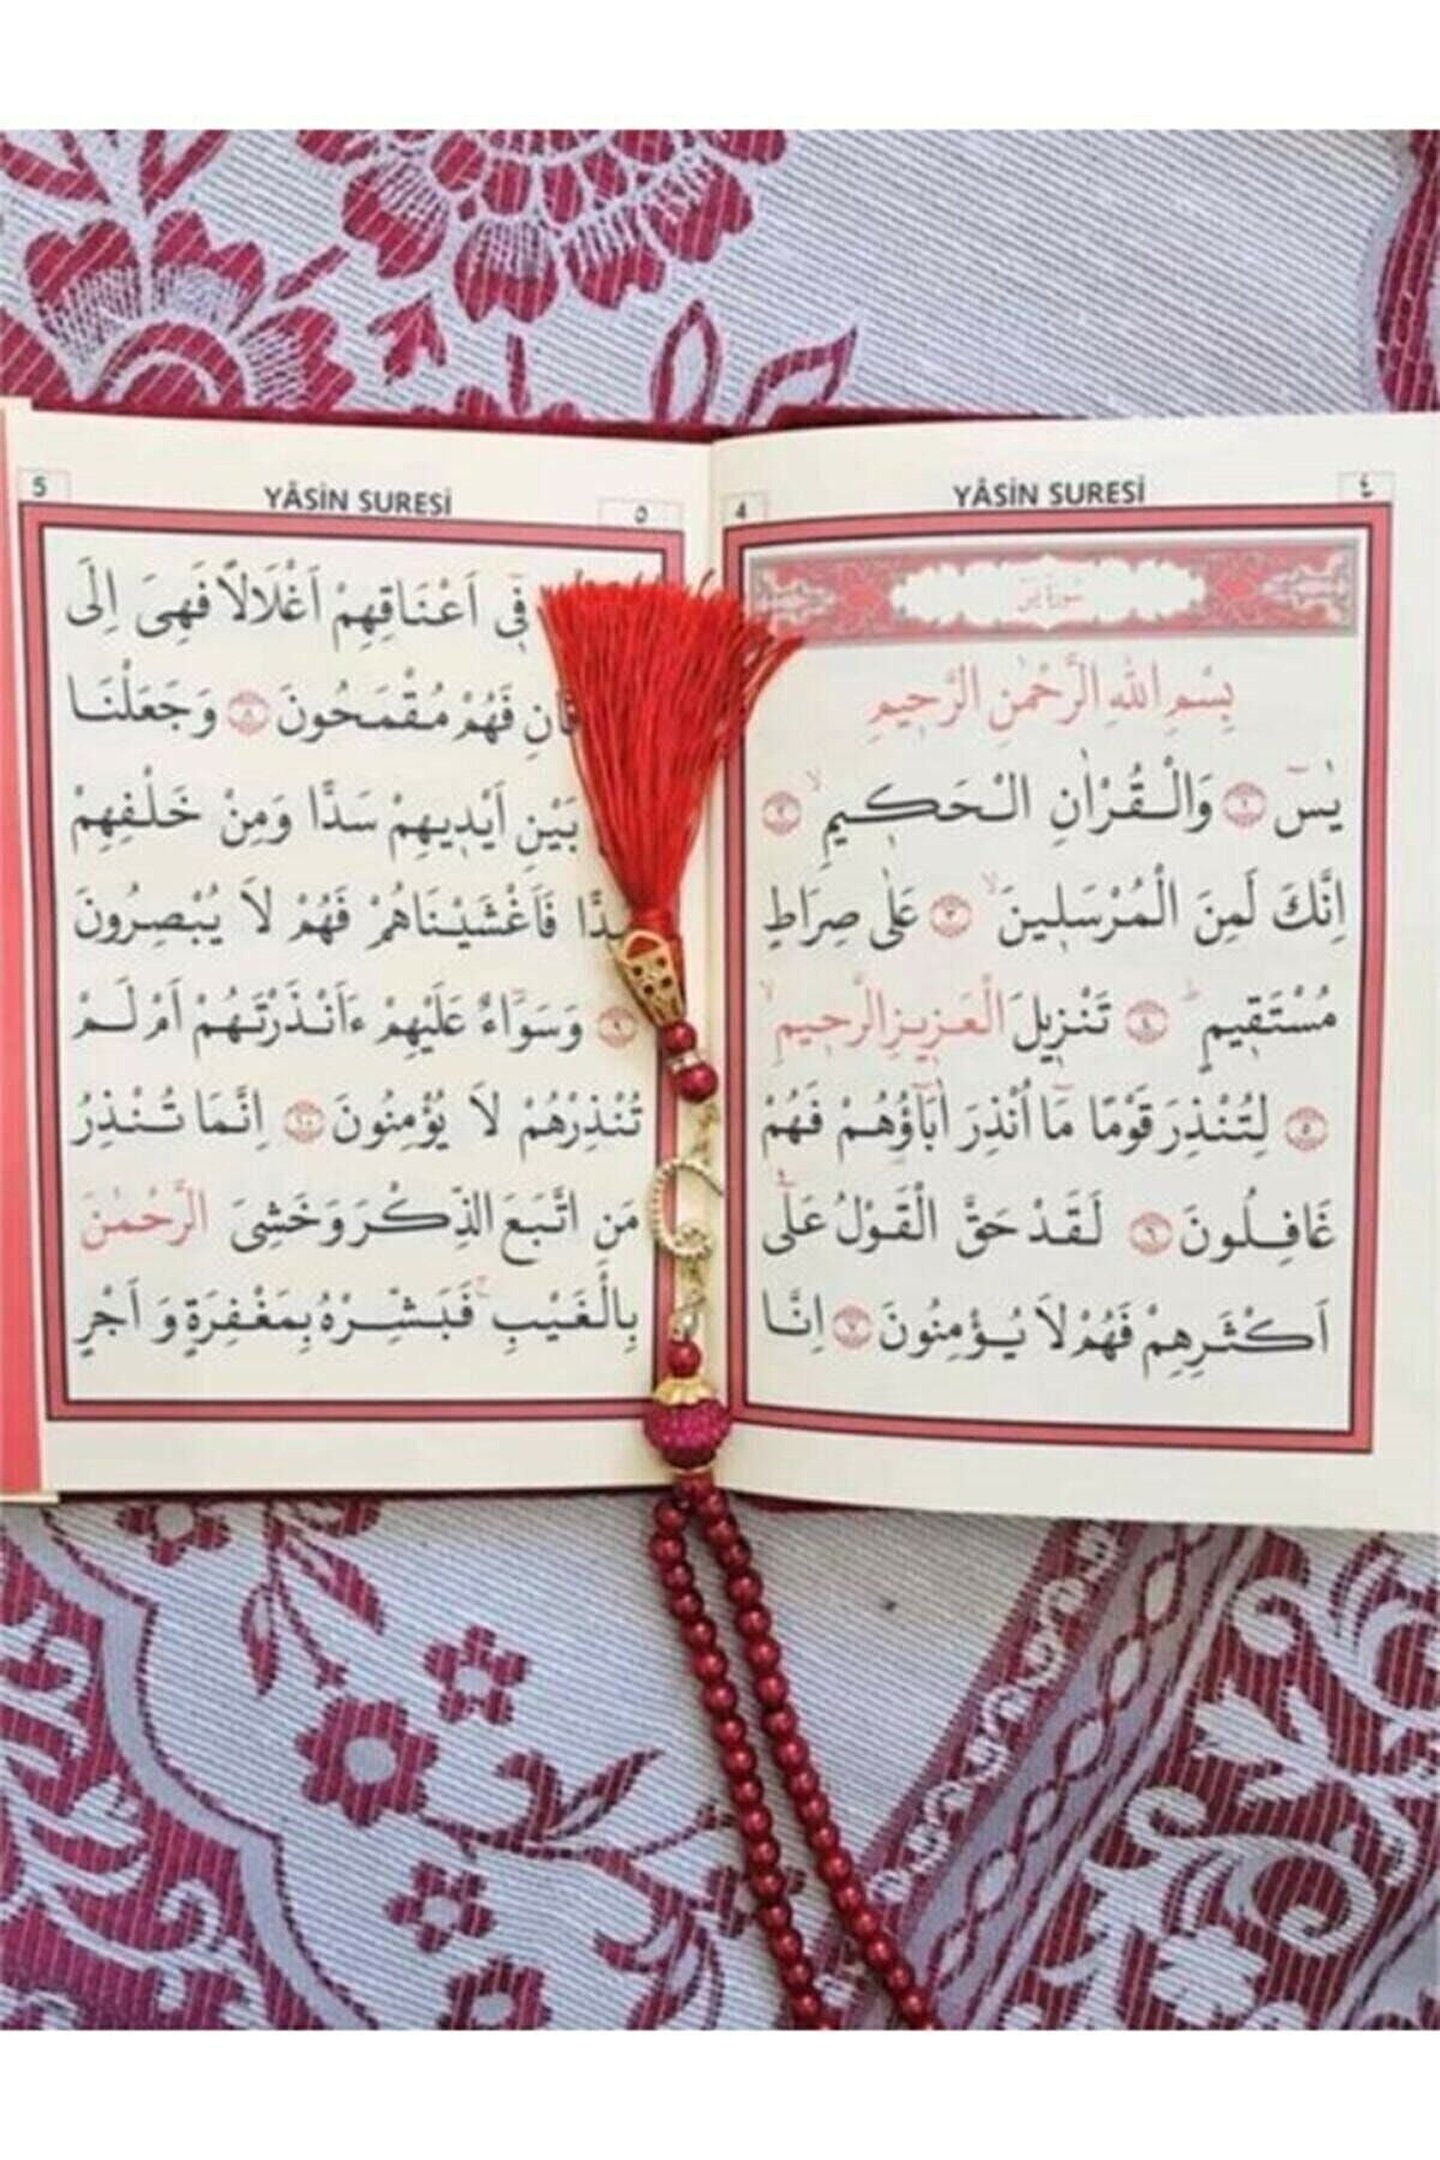 YÂSİN SURESİ
٤
4
سورة يس
بِسْمِ اللّٰهِ الرَّحْمٰنِ الرَّحٖيمِ
يٰسٓ ﴿١﴾ وَالْقُرْاٰنِ الْحَكٖيمِۙ ﴿٢﴾
اِنَّكَ لَمِنَ الْمُرْسَلٖينَۙ ﴿٣﴾ عَلٰى صِرَاطٍ
مُسْتَقٖيمٍؕ ﴿٤﴾ تَنْزٖيلَ الْعَزٖيزِ الرَّحٖيمِۙ
﴿٥﴾ لِتُنْذِرَ قَوْمًا مَٓا اُنْذِرَ اٰبَٓاؤُهُمْ فَهُمْ
غَافِلُونَ ﴿٦﴾ لَقَدْ حَقَّ الْقَوْلُ عَلٰٓى
اَكْثَرِهِمْ فَهُمْ لَا يُؤْمِنُونَ ﴿٧﴾ اِنَّا
5
YÂSİN SURESİ
٥
فٖٓى اَعْنَاقِهِمْ اَغْلَالًا فَهِىَ اِلَى
فَهُمْ مُقْمَحُونَ ﴿٨﴾ وَجَعَلْنَا
بَيْنِ اَيْدٖيهِمْ سَدًّا وَمِنْ خَلْفِهِمْ
فَاَغْشَيْنَاهُمْ فَهُمْ لَا يُبْصِرُونَ
﴿٩﴾ وَسَوَٓاءٌ عَلَيْهِمْ ءَاَنْذَرْتَهُمْ اَمْ لَمْ
تُنْذِرْهُمْ لَا يُؤْمِنُونَ ﴿١٠﴾ اِنَّمَا تُنْذِرُ
مَنِ اتَّبَعَ الذِّكْرَ وَخَشِىَ الرَّحْمٰنَ
بِالْغَيْبِۚ فَبَشِّرْهُ بِمَغْفِرَةٍ وَاَجْرٍ